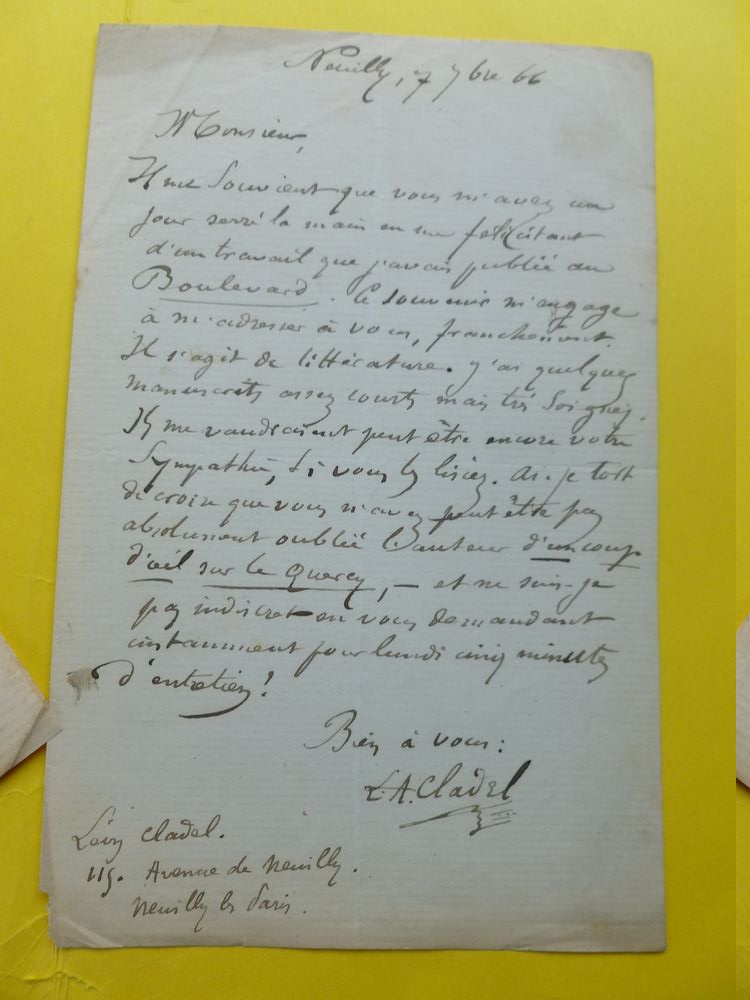 Neuilly, 7 7bre 66
Monsieur,
Il me souvient que vous m'avez un
jour serré la main en me félicitant
d'un travail que j'avais publié au
Boulevard. Ce souvenir m'engage
à m'adresser à vous, franchement.
Il s'agit de littérature. J'ai quelques
manuscrits assez courts mais très soignés.
Ils me vaudraient peut être encore votre
sympathie, si vous les lisiez. Ai-je tort
de croire que vous n'avez peut être pas
absolument oublié l'auteur d'un coup
d'œil sur le Quercy, — et ne suis-je
pas indiscret en vous demandant
instamment pour lundi cinq minutes
d'entretien!
Bien à vous:
L.A. Cladel
Léon Cladel.
115. Avenue de Neuilly.
Neuilly les Paris.